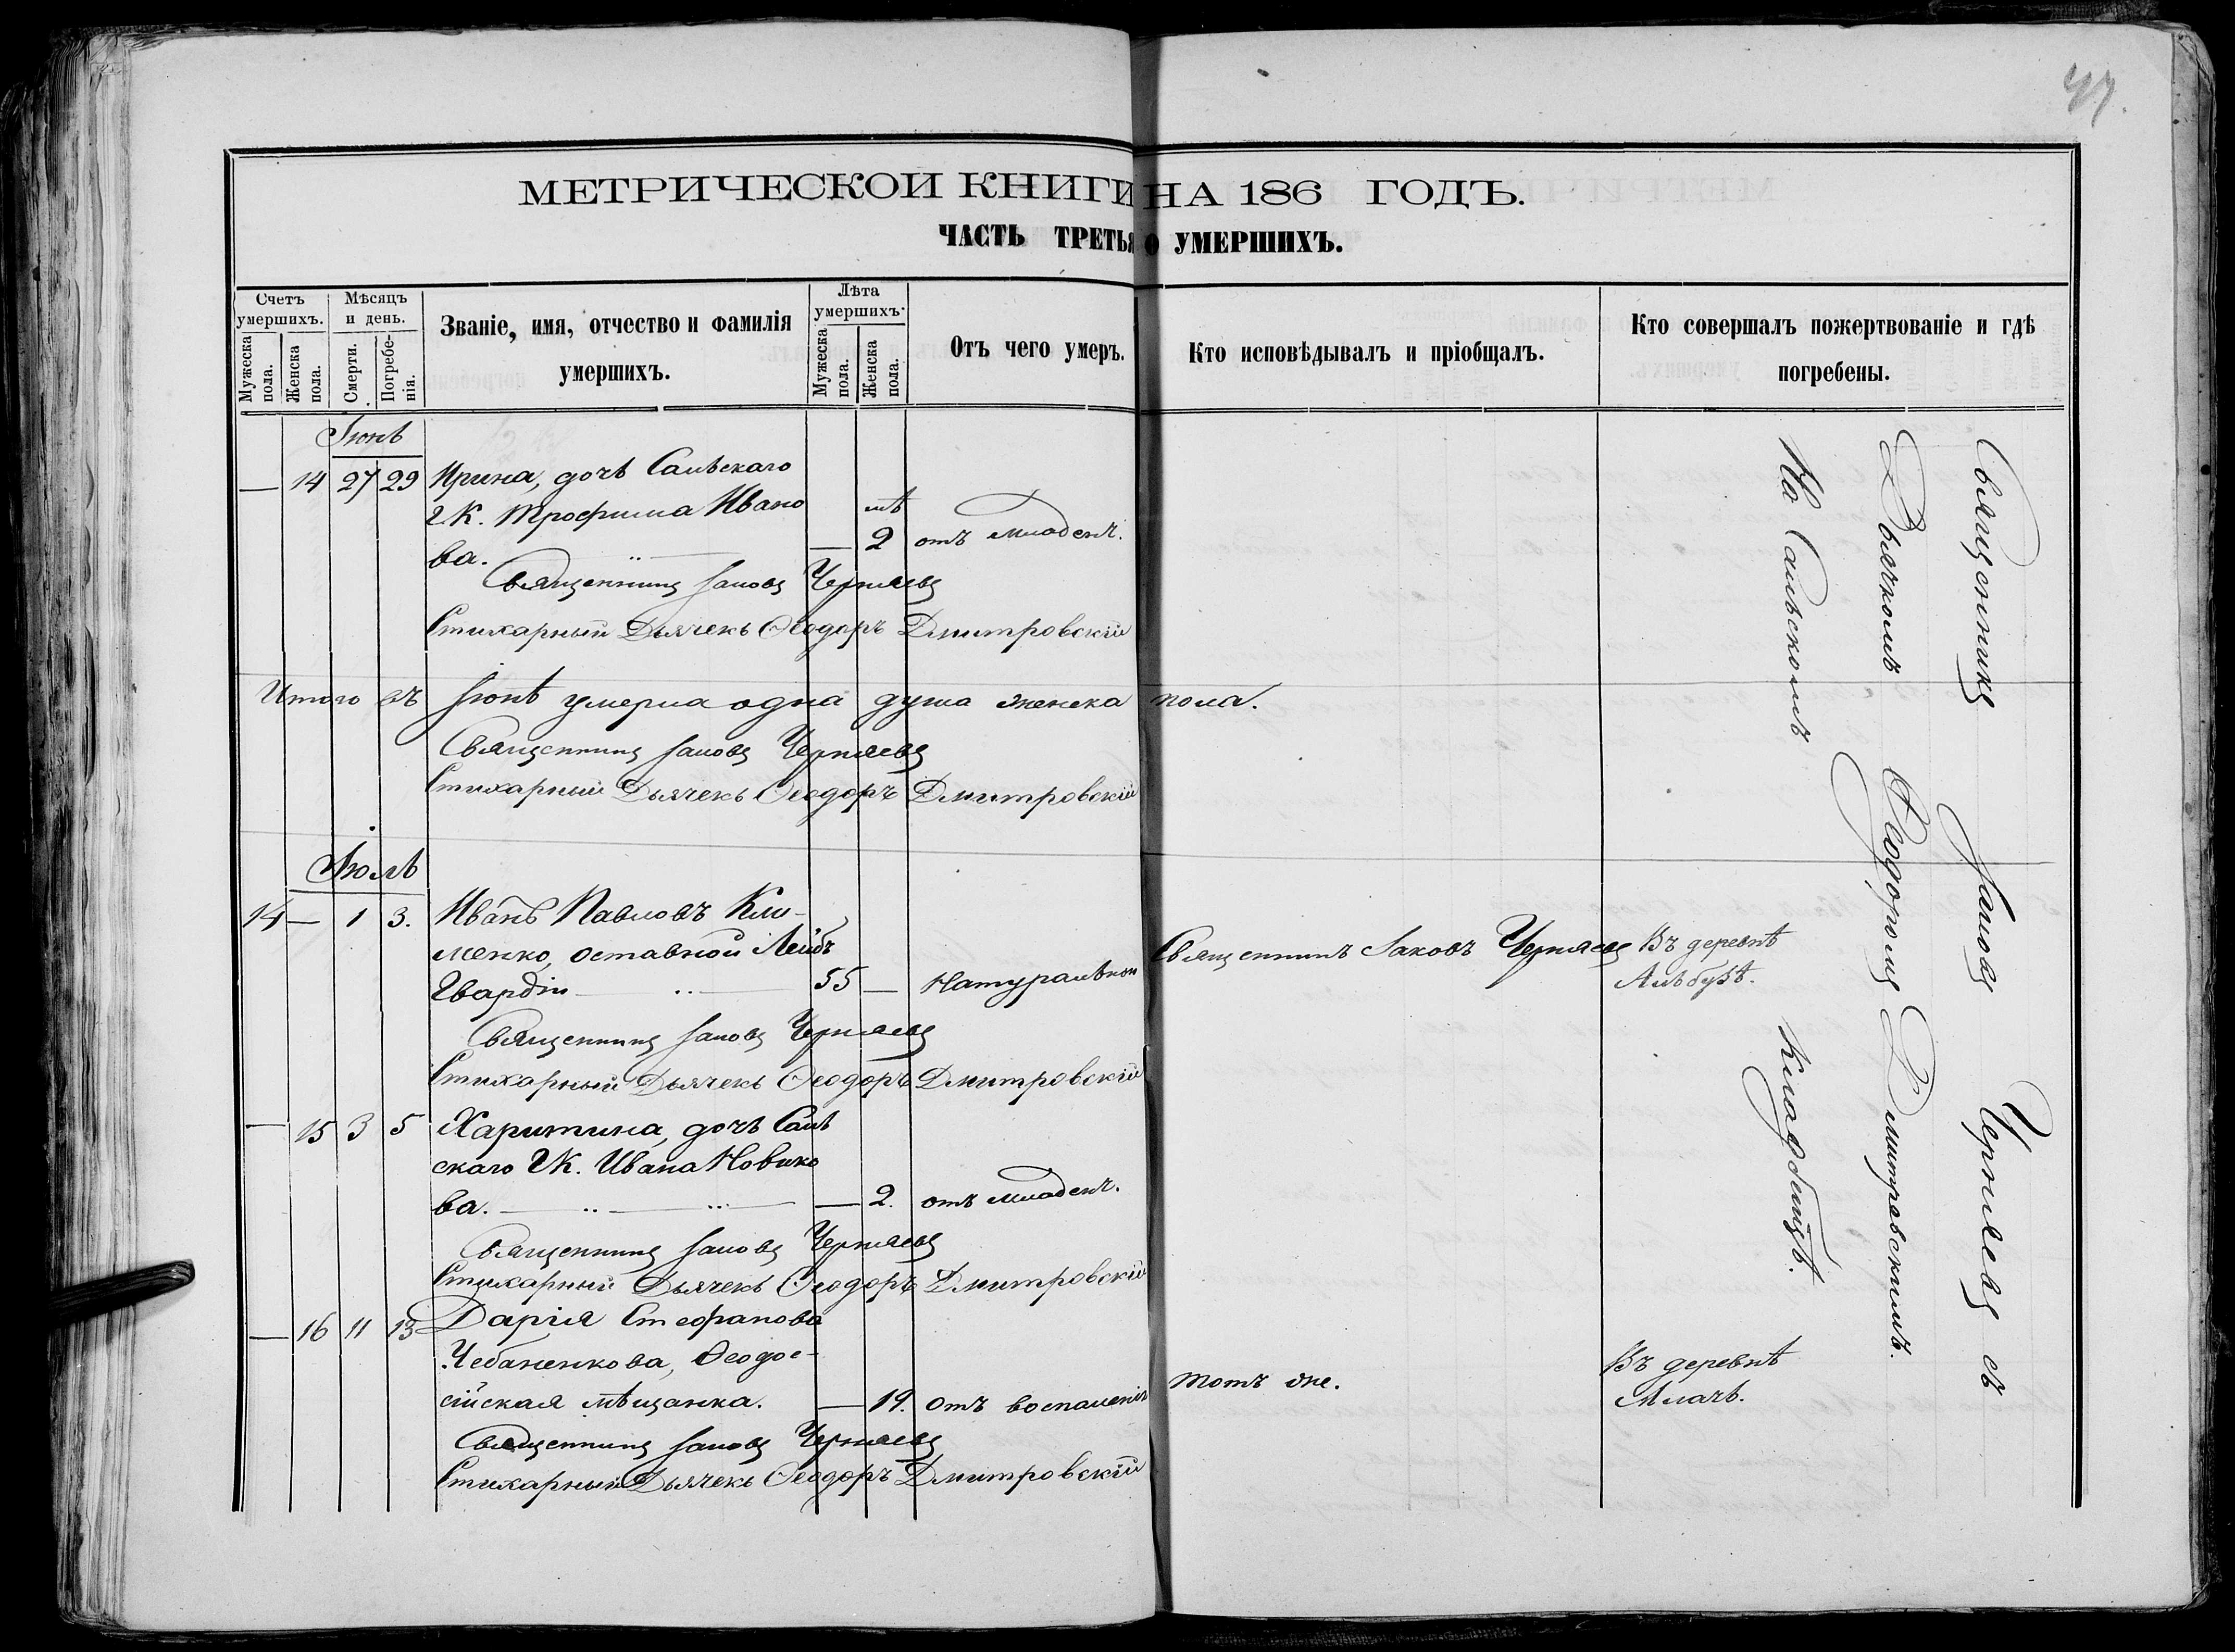 47.
МЕТРИЧЕСКОЙ КНИГИ НА 186 ГОДЪ.
ЧАСТЬ ТРЕТЬЯ О УМЕРШИХЪ.
Счетъ умершихъ.
Мужеска пола.
Женска пола.
Мѣсяцъ и день.
Смерти.
Погребенія.
Званіе, имя, отчество и фамилія
умершихъ.
Лѣта умершихъ.
Мужеска пола.
Женска пола.
Отъ чего умеръ.
Кто исповѣдывалъ и пріобщалъ.
Кто совершалъ пожертвованіе и гдѣ
погребены.
Іюнь
— 14 27 29 Ирина, дочь Сальскаго
Г К. Трофима Ивано
ва. — 2 отъ младенч.
Священникъ Іаковъ Черняевъ
Стихарный Дьячекъ Ѳеодоръ Дмитровскій
Итого въ Іюнѣ умерла одна душа женска пола.
Священникъ Іаковъ Черняевъ
Стихарный Дьячекъ Ѳеодоръ Дмитровскій
Іюль
14 — 1 3. Иванъ Павловъ Кли-
менко, оставной Лейбъ
Гвардіи 55 — Натуральной
Священникъ Іаковъ Черняевъ
Въ деревнѣ
Альбузѣ.
Священникъ Іаковъ Черняевъ
Стихарный Дьячекъ Ѳеодоръ Дмитровскій
— 15 3 5 Харитина, дочь Саль
скаго Г К. Ивана Новико
ва. — 2. отъ младенч.
Священникъ Іаковъ Черняевъ
Стихарный Дьячекъ Ѳеодоръ Дмитровскій
— 16 11 13 Дарія Стефанова
Чебаненкова, Ѳеодо-
сійская мѣщанка. — 19. отъ воспаленія
тотъ же.
Въ деревнѣ
Алачъ.
Священникъ Іаковъ Черняевъ
Стихарный Дьячекъ Ѳеодоръ Дмитровскій
Священникъ Іаковъ Черняевъ съ
Дьячкомъ Ѳеодоромъ Дмитровскимъ.
На Сальскомъ кладбищѣ.